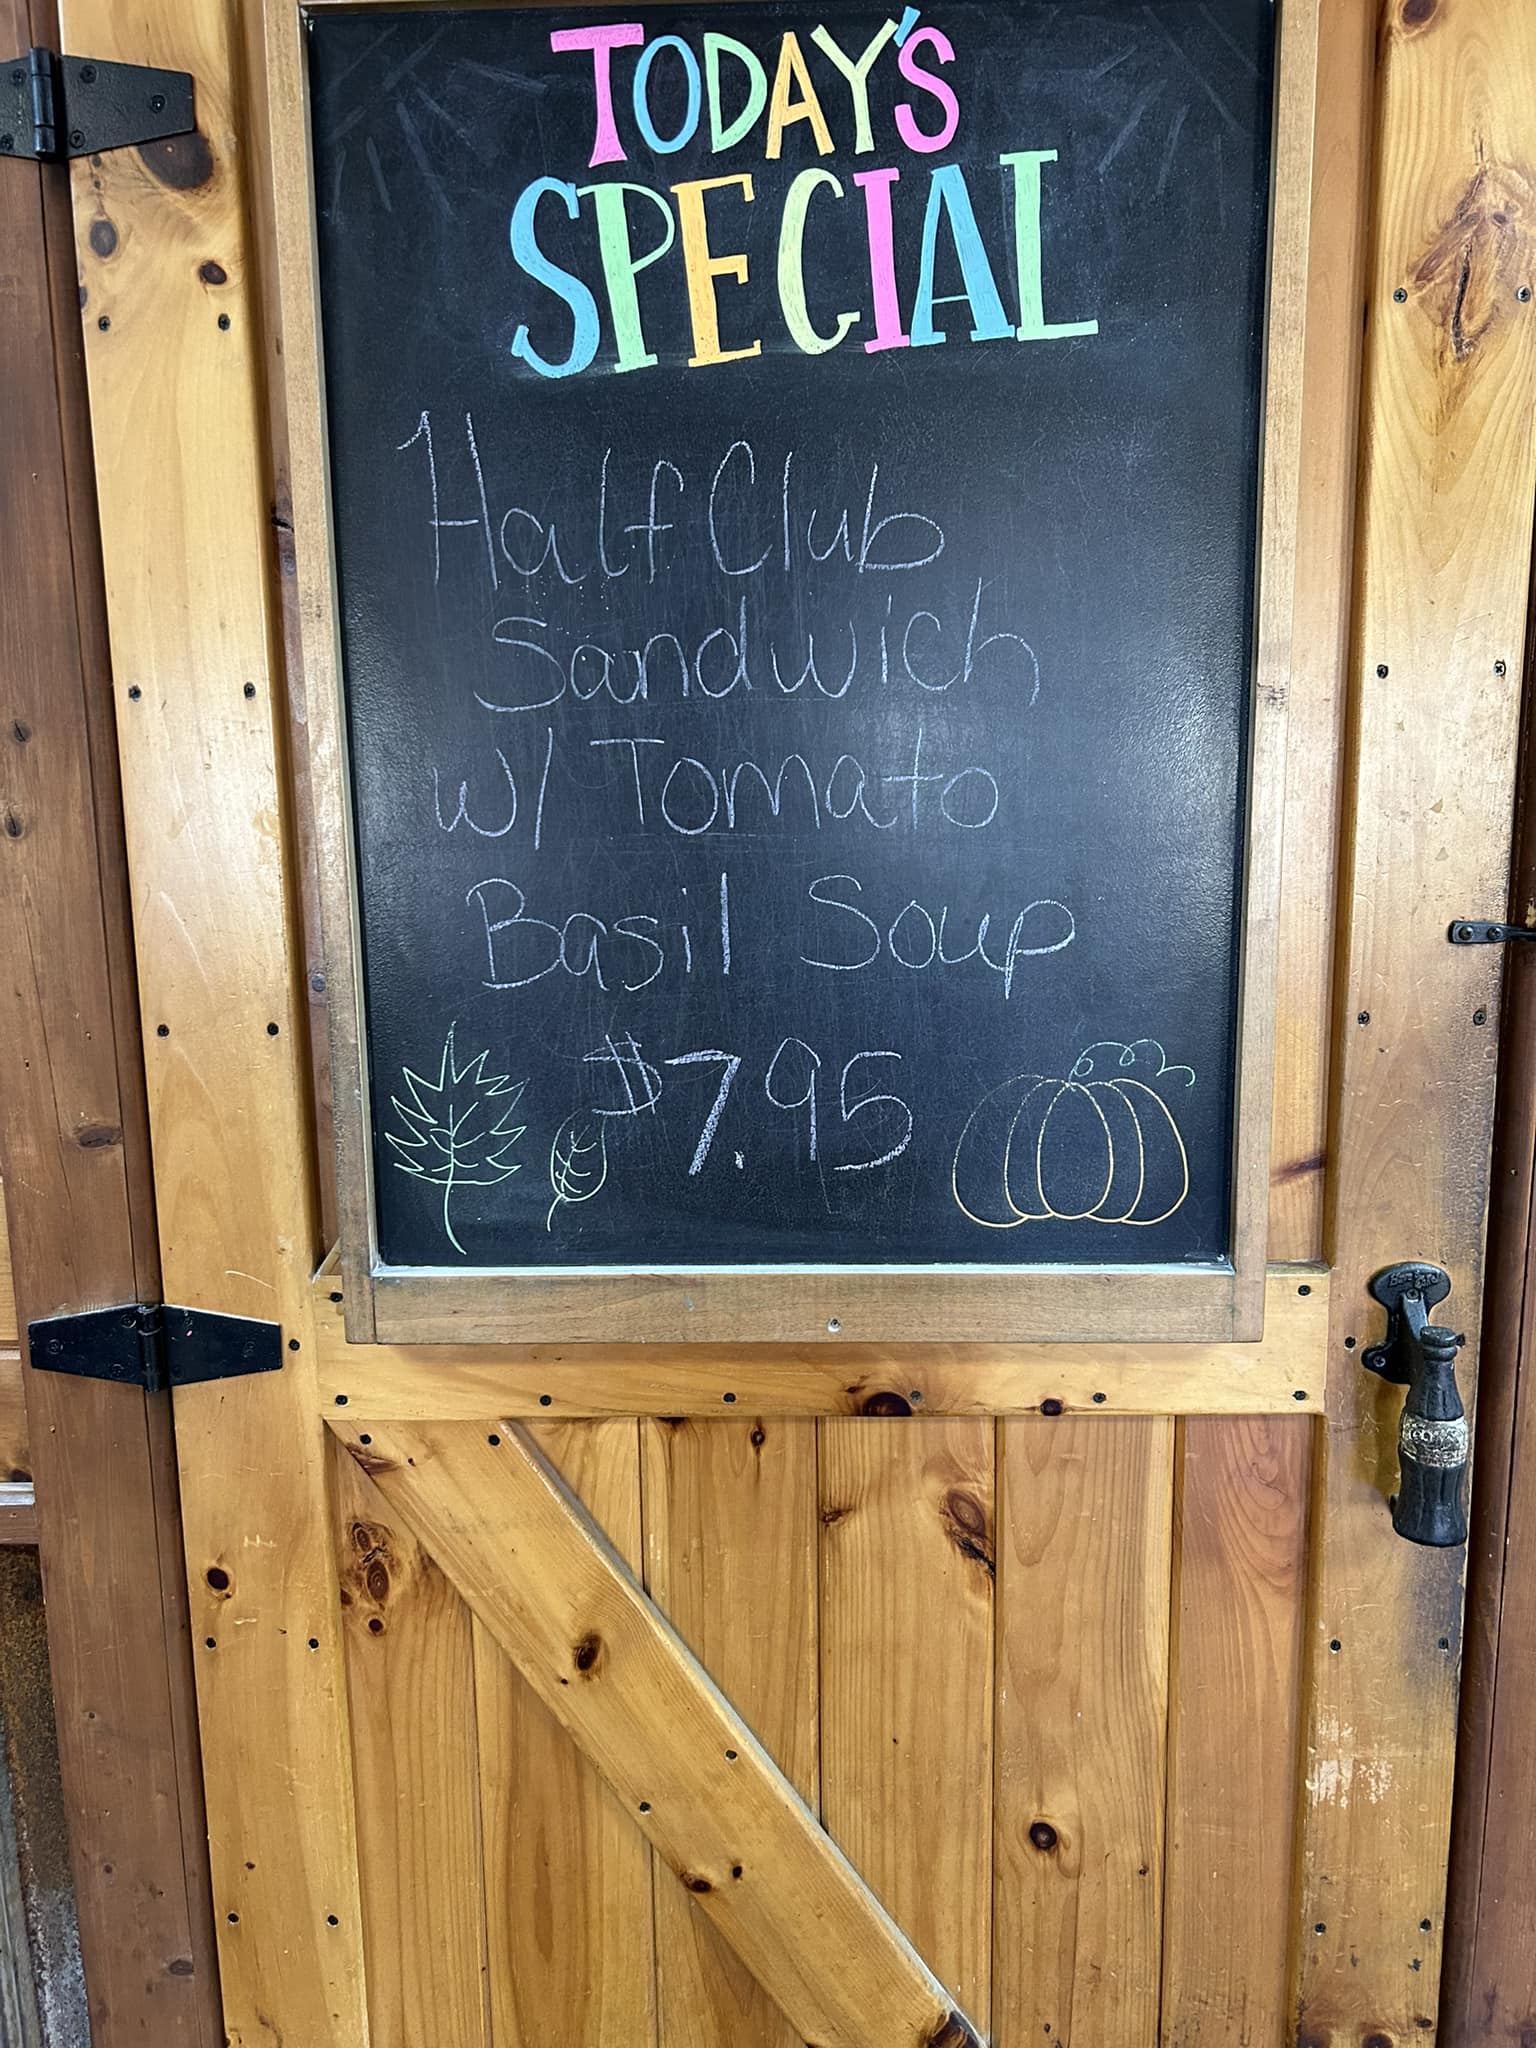 TODAY'S
SPECIAL
Half Club
Sandwich
w/ Tomato
Basil Soup
$7.95